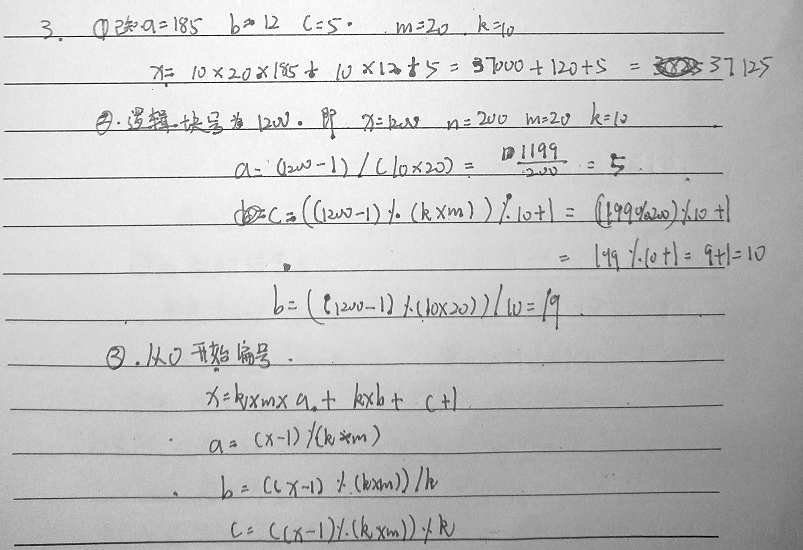 3. ①已知a=185 b=12 c=5. m=20 k=10
x= 10×20×185+ 10×12+5 = 37000+120+5 = 37125
②.逻辑块号为1200. 即 x=1200 n=200 m=20 k=10
a=(1200-1)/(10×20) = 1199/200 = 5
c=((1200-1)%(k×m))%10+1 = (1199%200)%10+1
= 199%10+1=9+1=10
b=((1200-1)%(10×20))/10=19
③.从0开始编号.
x=k×m×a+ k×b+ c+1
a=(x-1)/(k*m)
b=((x-1)%(k×m))/k
c=((x-1)%(k×m))%k